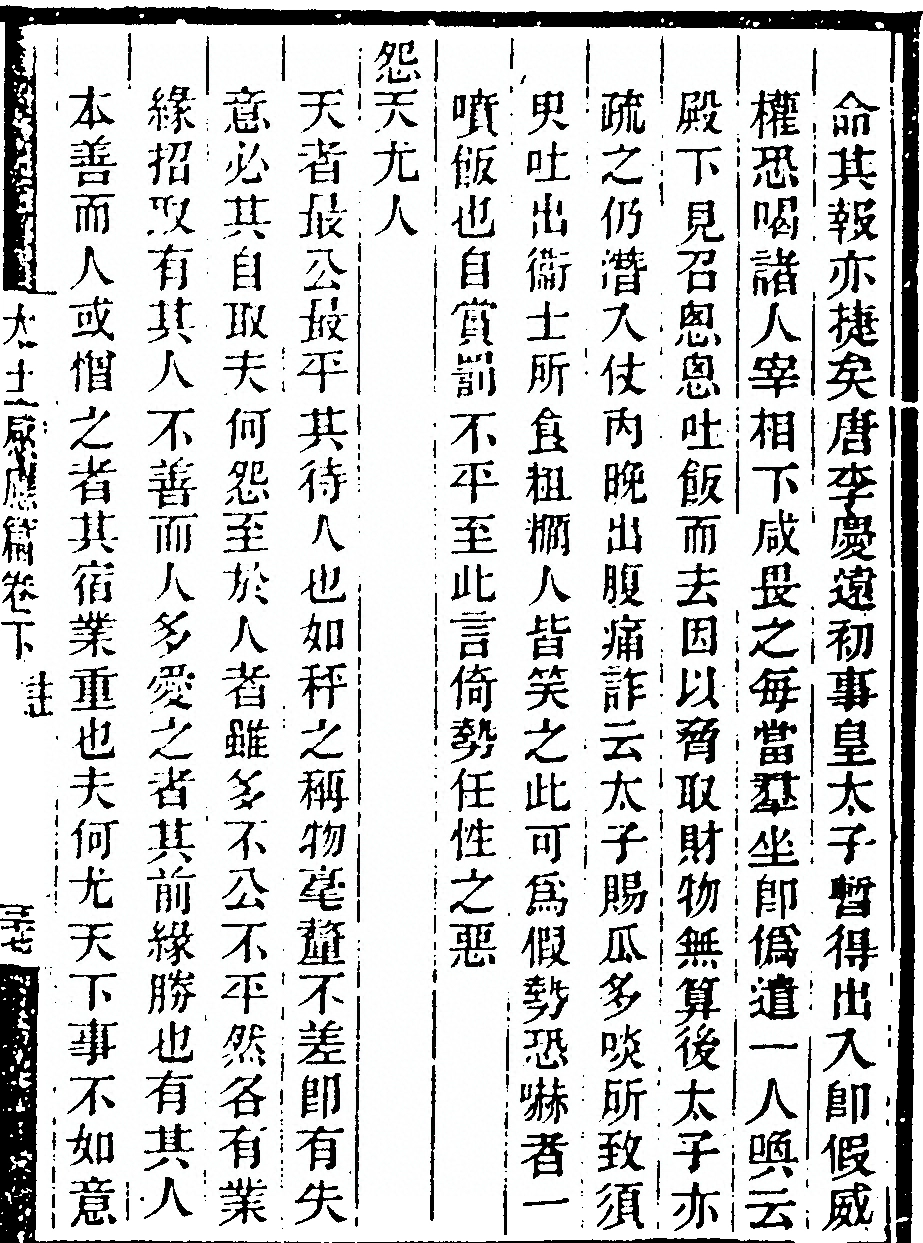 命其報亦捷矣唐李慶遠初事皇太子暫得出入卽假威
權恐喝諸人宰相下咸畏之每當羣坐卽僞遣一人喚云
殿下見召悤悤吐飯而去因以脅取財物無算後太子亦
疏之仍潛入仗內晚出腹痛詐云太子賜瓜多啖所致須
臾吐出衞士所食粗糲人皆笑之此可爲假勢恐嚇者一
噴飯也自賞罰不平至此言倚勢任性之惡
怨天尤人
天者最公最平其待人也如秤之稱物毫釐不差卽有失
意必其自取夫何怨至於人者雖多不公不平然各有業
緣招取有其人不善而人多愛之者其前緣勝也有其人
本善而人或憎之者其宿業重也夫何尤天下事不如意
太上感應篇卷下 註
三十七